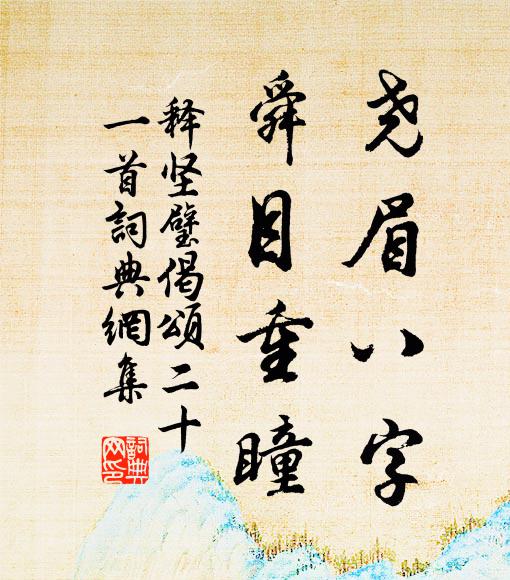 尧眉八字
舜目重瞳
释坚璧偈颂二十
一首詞典網集
詞典
网印